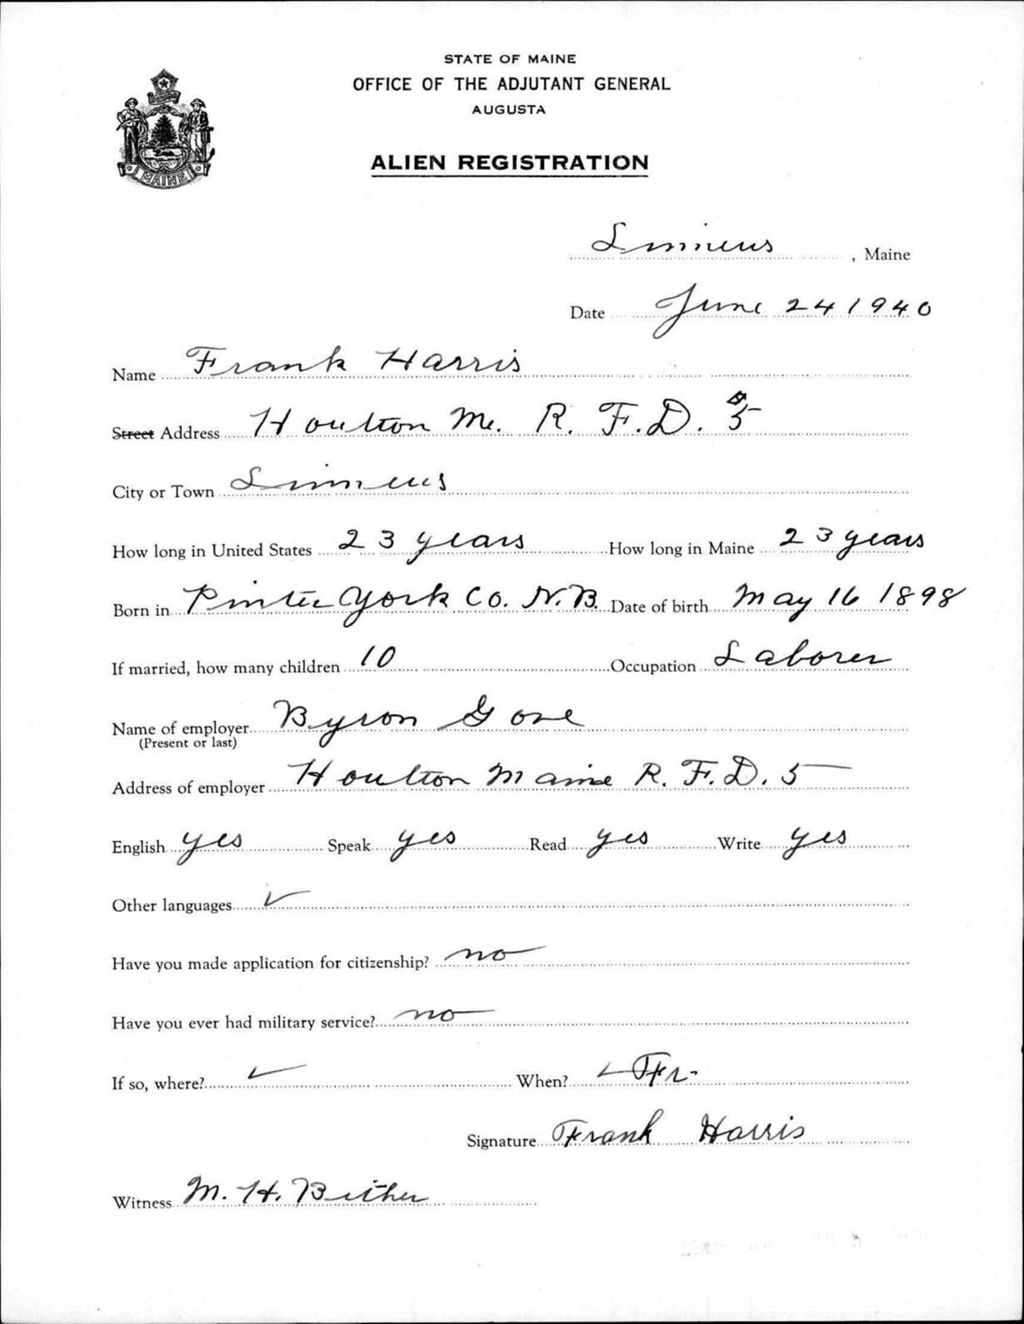 STATE OF MAINE
OFFICE OF THE ADJUTANT GENERAL
AUGUSTA
MAINE
ALIEN REGISTRATION
Linneus, Maine
Date June 24 1940
Name Frank Harris
Street Address Houlton Me. R. F. D. 5
City or Town Linneus
How long in United States 23 years How long in Maine 23 years
Born in York Co. N.B. Date of birth May 16 1898
If married, how many children 10 Occupation Laborer
Name of employer Byron
(Present or last)
Address of employer Houlton Maine R. F. D. 5
English yes Speak yes Read yes Write yes
Other languages ✓
Have you made application for citizenship? no
Have you ever had military service? no
If so, where? ✓ When? ✓ Fr
Signature Frank Harris
Witness M. H. Bither